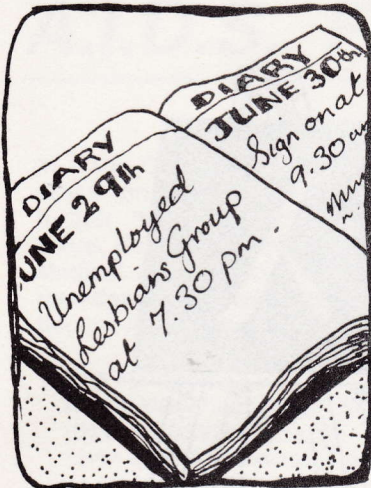 DIARY
UNE 29th
Unemployed
Lesbians Group
at 7.30 pm.
DIARY
JUNE 30th
Sign on at
9.30 am